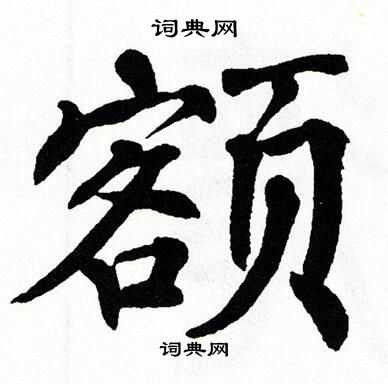 词典网
额
词典网